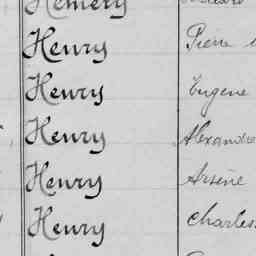 Hemery
Henry Pierre
Henry Eugène
Henry Alexandre
Henry Arsène
Henry Charles